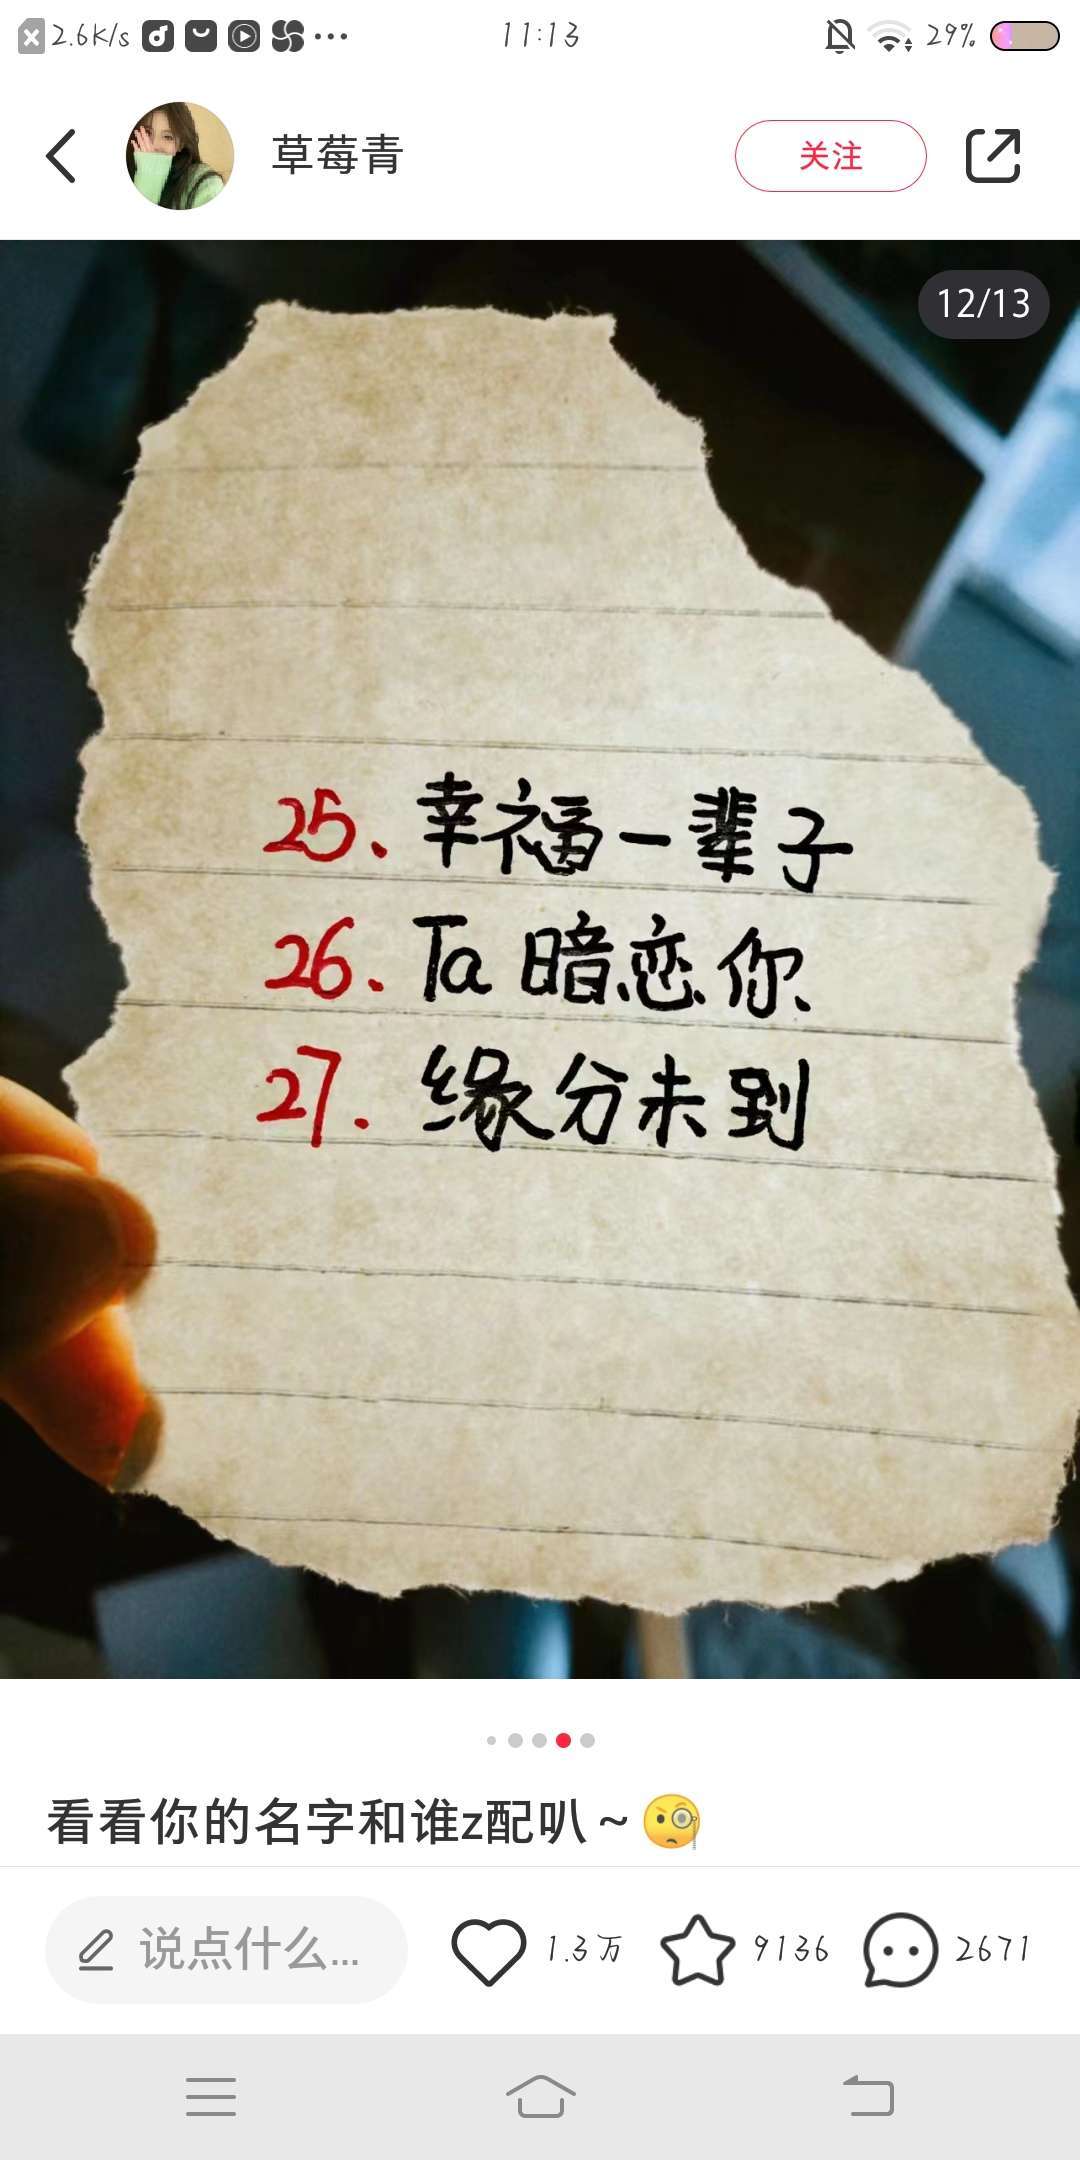 2.6K/s
11:13
29%
草莓青
关注
12/13
25、幸福一辈子
26.Ta暗恋你
27.缘分未到
看看你的名字和谁z配叭～
说点什么...
1.3万
9136
2671